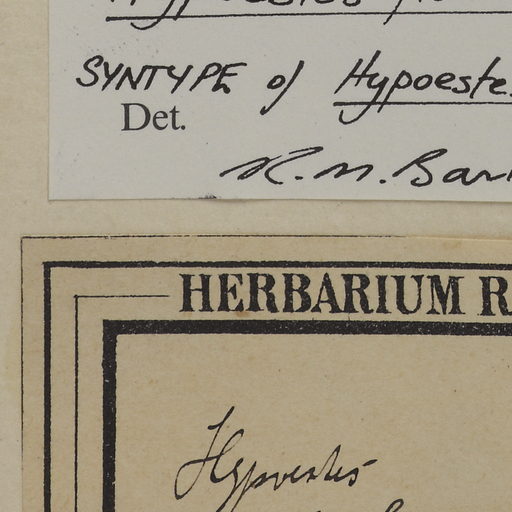 Hypoestes
SYNTYPE of Hypoeste
Det.
R.M. Bar
HERBARIUM R
Hypoestes